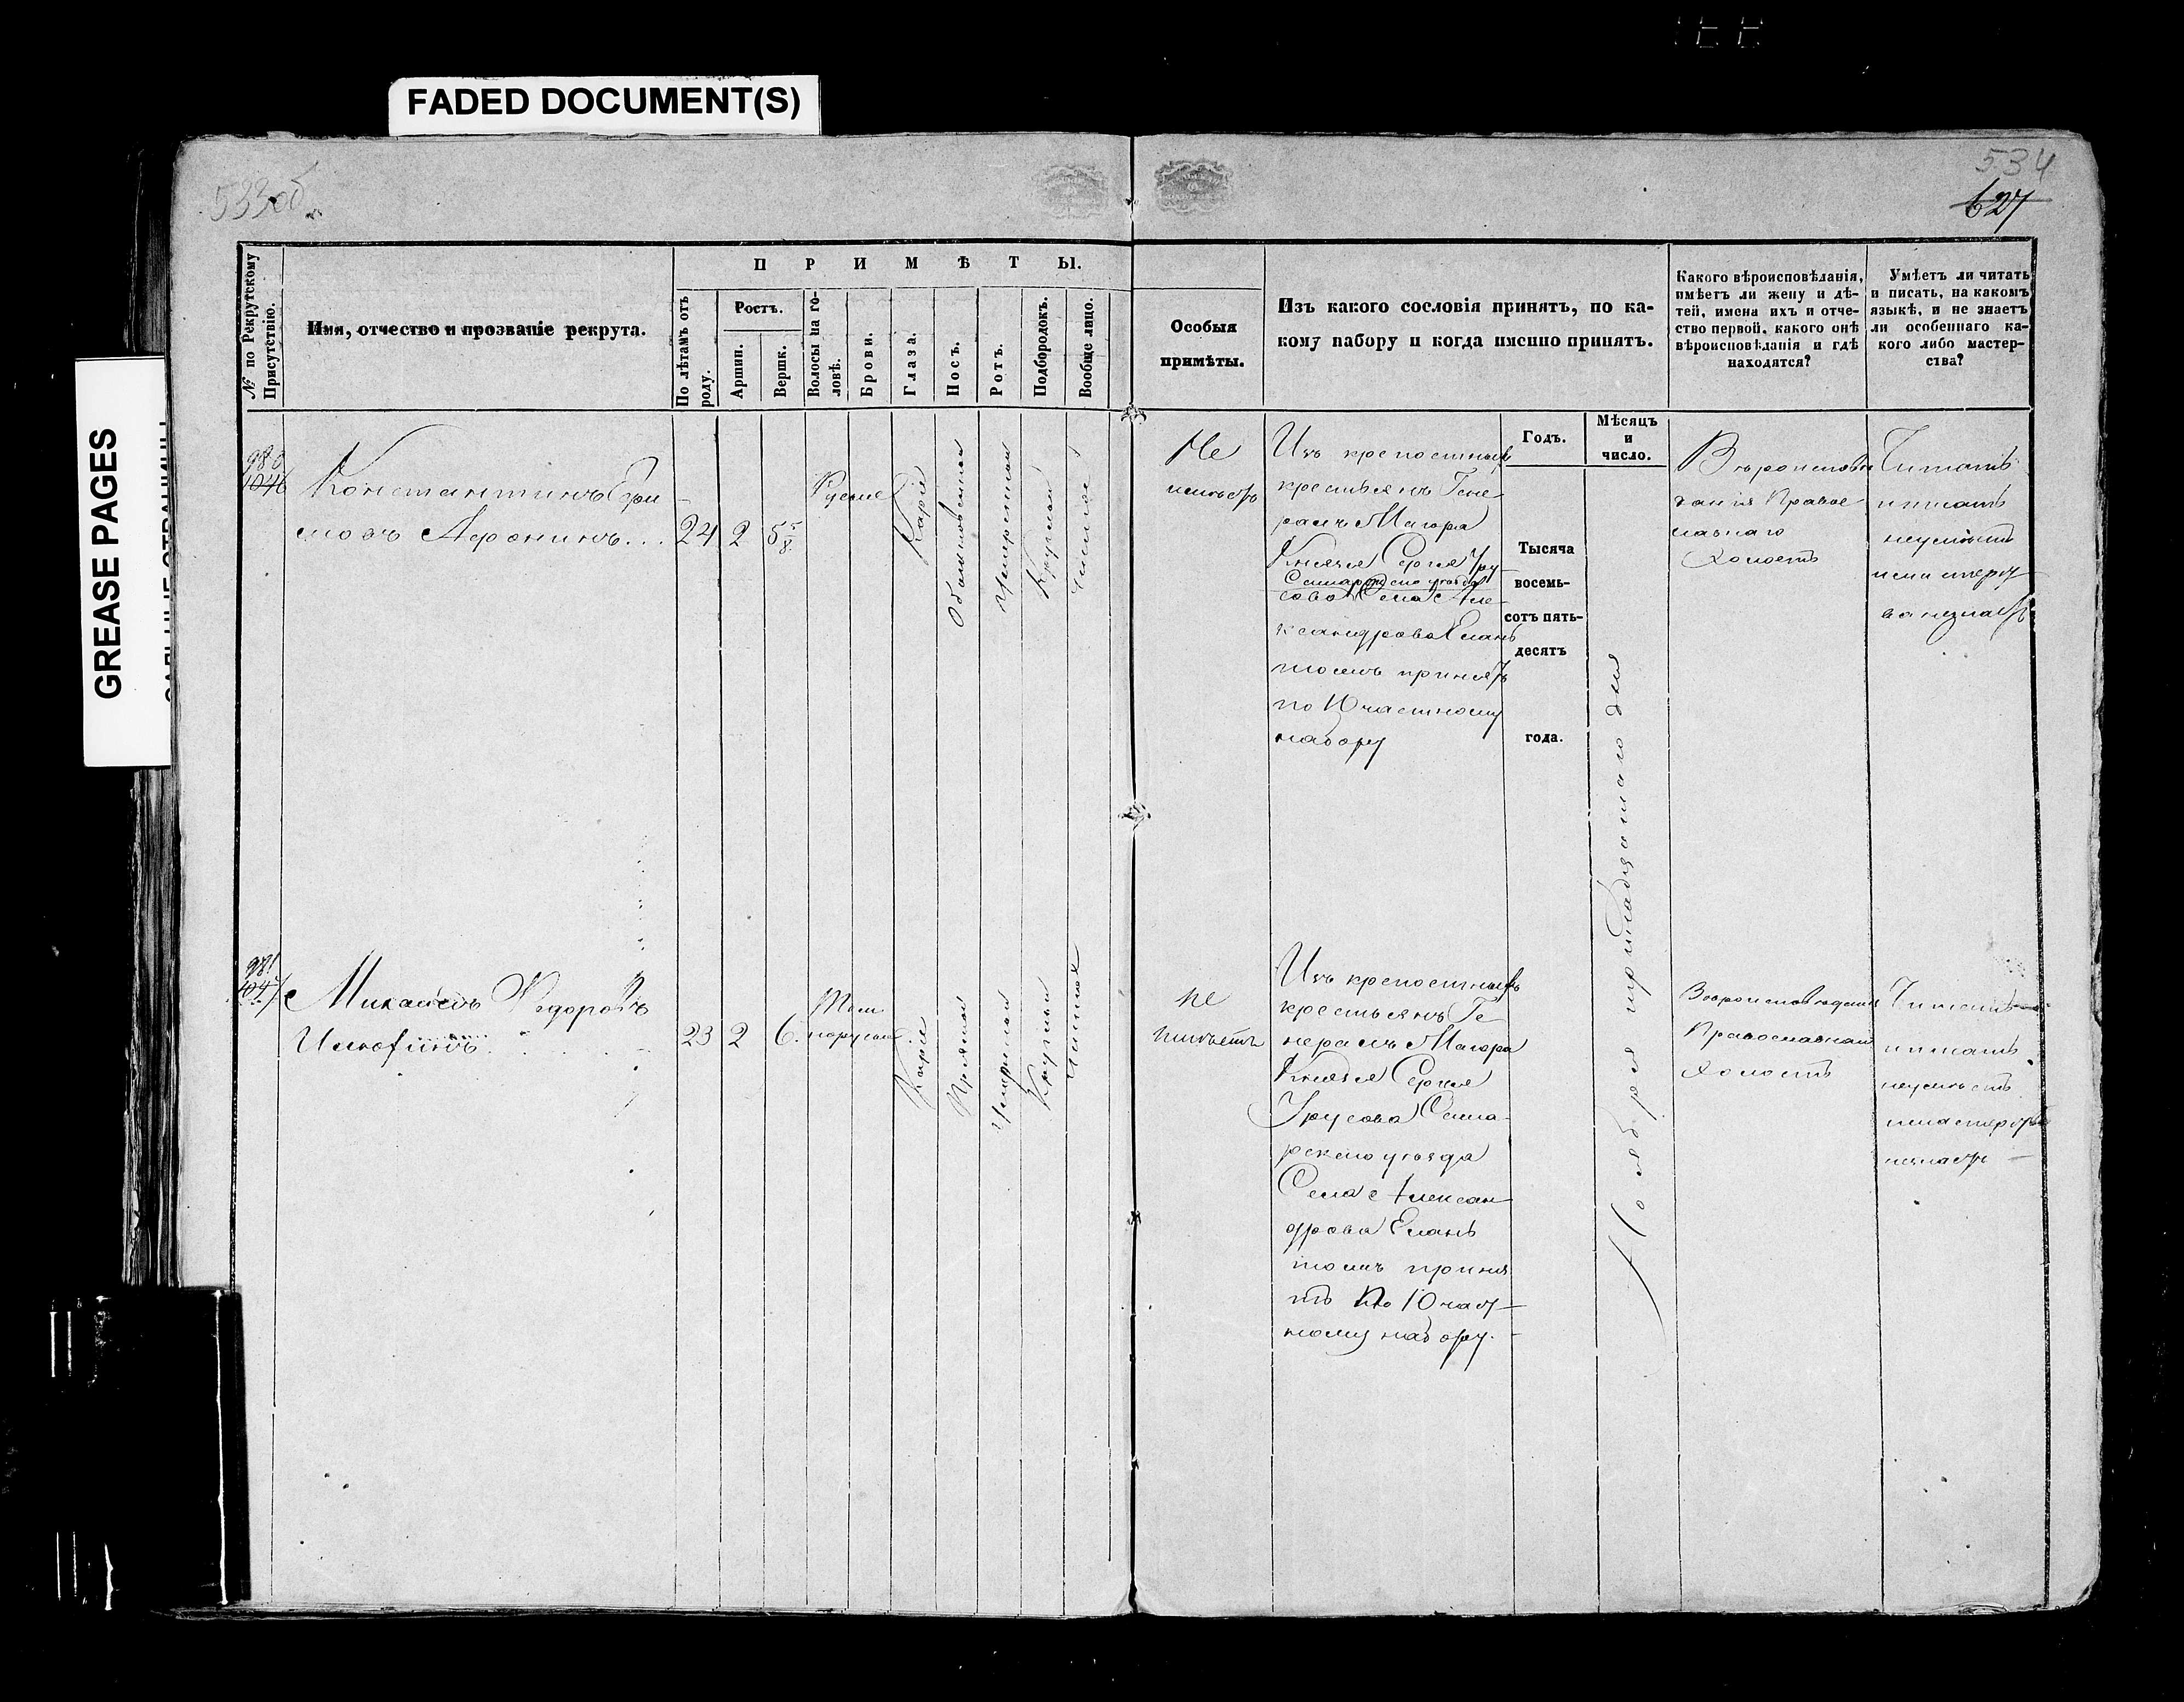 FADED DOCUMENT(S)
GREASE PAGES
533об.
534
627
№ по Рекрутскому Присутствію.
Имя, отчество и прозваніе рекрута.
ПРИМѢТЫ.
По лѣтамъ отъ роду.
Ростъ.
Аршин.
Вершк.
Волосы на головѣ.
Брови.
Глаза.
Носъ.
Ротъ.
Подбородокъ.
Вообще лицо.
Особыя
примѣты.
Изъ какого сословія принятъ, по ка-
кому набору и когда именно принятъ.
Какого вѣроисповѣданія,
имѣетъ ли жену и дѣ-
тей, имена ихъ и отче-
ство первой, какого онѣ
вѣроисповѣданія и гдѣ
находятся?
Умѣетъ ли читать
и писать, на какомъ
языкѣ, и не знаетъ
ли особеннаго ка-
кого либо мастер-
ства?
Годъ.
Мѣсяцъ
и
число.
980
1046
Константинъ Ефи
мовъ Афонинъ...
24
2
5 5/8
Русые
Каріе
Обыкновенной
Умеренной
Круглой
Чистое
Не
имеетъ
Изъ крепостныхъ
крестьянъ Гене
ралъ Маіора
Князя Сергея Уру
Самарскаго уезда
сова Села Але
ксандрова Елань
тожъ принятъ
по 10 частному
набору
Тысяча
восемь-
сотъ пять-
десятъ
года.
Ноября тринадцатаго дня
Вероисповѣ
данія Право
славнаго
Холостъ
Читать
писать
неумѣетъ
и мастерст
ва незнаетъ
981
1047
Михайлъ Федоровъ
23
2
6.
Темнорусые
Каріе
Прямой
Умеренной
Круглый
Чистое
Не
имѣетъ
Изъ крепостныхъ
крестьянъ Ге
нералъ Маіора
Князя Сергея
Урусова Сама-
рскаго уѣзда
Села Алексан
дрова Елань
тожъ приня
тъ По 10 част-
ному набору.
Вѣроисповѣданія
Православнаго
Холостъ
Читать
писать
неумѣетъ
мастерства
незнаетъ